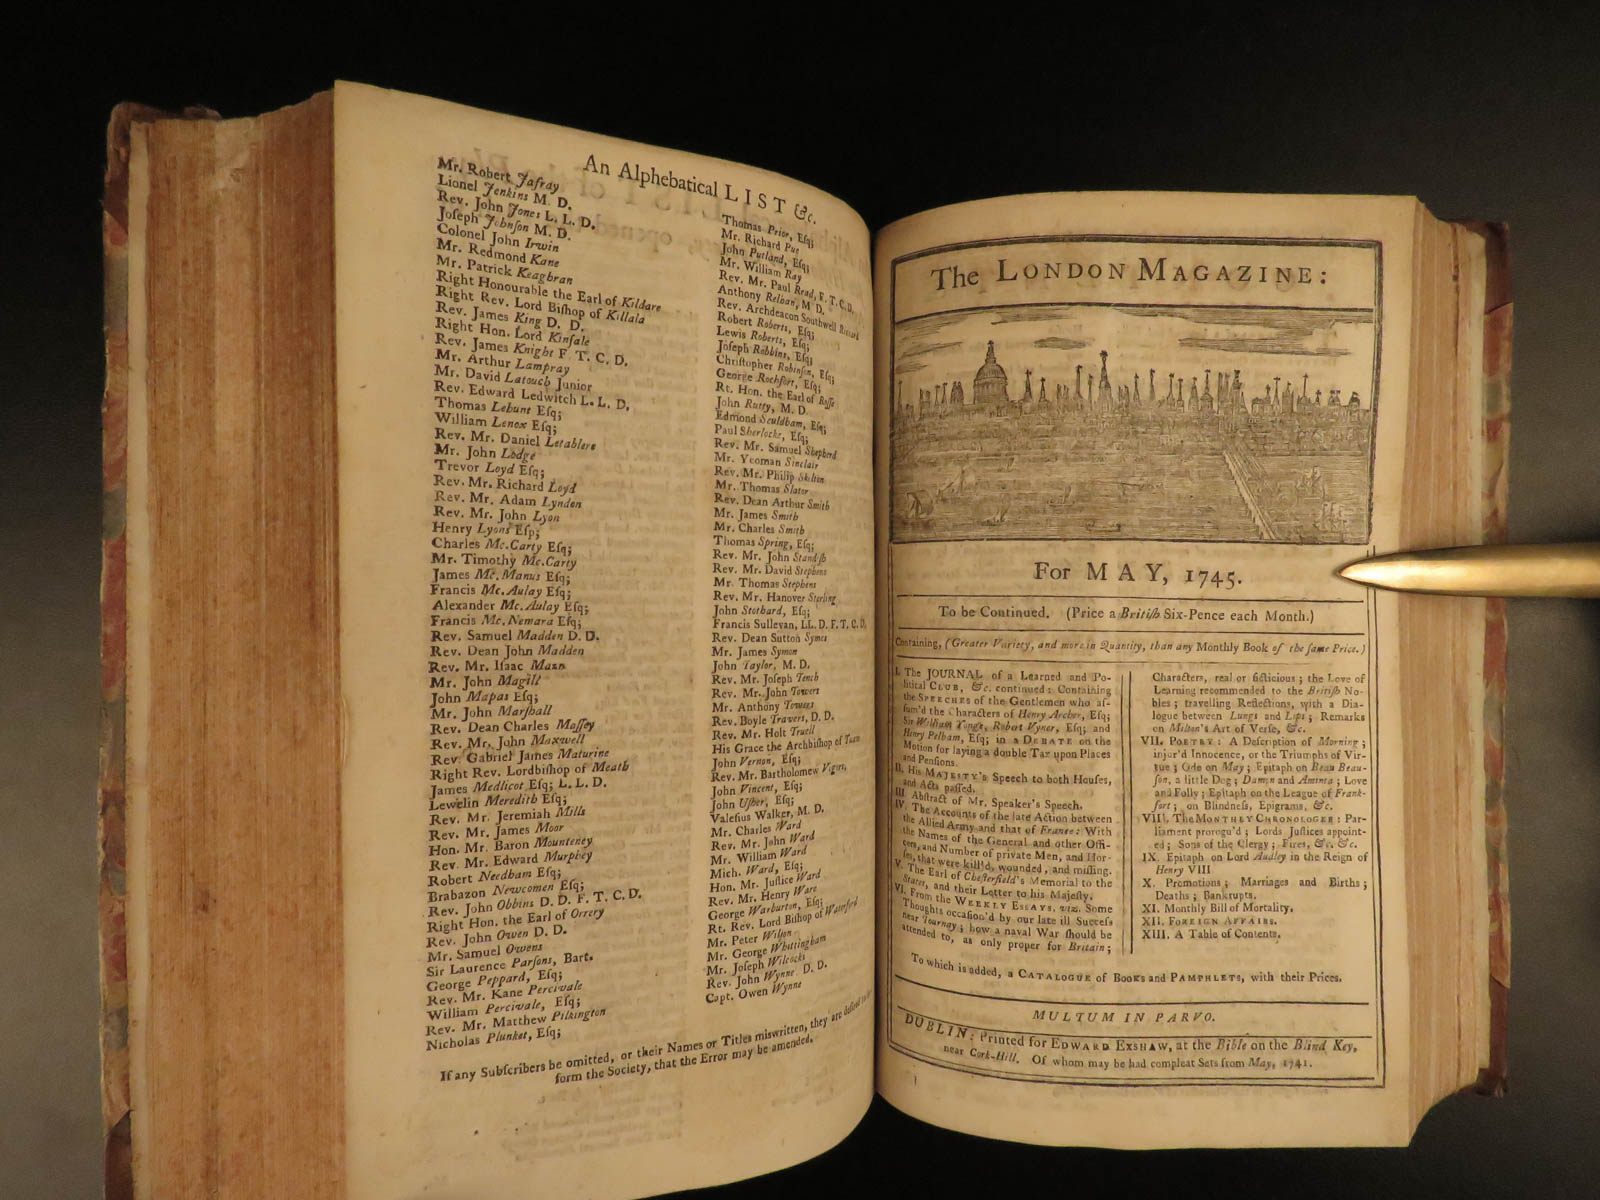 An Alphebatical LIST &c.
Mr. Robert Jafray
Lionel Jenkins M. D.
Rev. John Jones L. L. D.
Joseph Johnſon M. D.
Colonel John Irwin
Mr. Redmond Kane
Mr. Patrick Keaghran
Right Honourable the Earl of Kildare
Right Rev. Lord Biſhop of Killala
Rev. James King D. D.
Right Hon. Lord Kinſale
Rev. James Knight F. T. C. D.
Mr. Arthur Lampray
Mr. David Latouch Junior
Rev. Edward Ledwitch L. L. D.
Thomas Lehunt Eſq;
William Lenox Eſq;
Rev. Mr. Daniel Letablere
Mr. John Lodge
Trevor Loyd Eſq;
Rev. Mr. Richard Loyd
Rev. Mr. Adam Lyndon
Rev. Mr. John Lyon
Henry Lyons Eſp;
Charles Mc.Carty Eſq;
Mr. Timothy Mc.Carty
James Mc.Manus Eſq;
Francis Mc.Aulay Eſq;
Alexander Mc.Aulay Eſq;
Francis Mc.Nemara Eſq;
Rev. Samuel Madden D. D.
Rev. Dean John Madden
Rev. Mr. Iſaac Mann
Mr. John Magill
John Mapas Eſq;
Mr. John Marſhall
Rev. Dean Charles Maſſey
Rev. Mr. John Maxwell
Rev. Gabriel James Maturine
Right Rev. Lordbiſhop of Meath
James Medlicot Eſq; L. L. D.
Lewelin Meredith Eſq;
Rev. Mr. Jeremiah Mills
Rev. Mr. James Moor
Hon. Mr. Baron Mounteney
Rev. Mr. Edward Murphey
Robert Needham Eſq;
Brabazon Newcomen Eſq;
Rev. John Obbins D. D. F. T. C. D.
Right Hon. the Earl of Orrery
Rev. John Owen D. D.
Mr. Samuel Owens
Sir Laurence Parſons, Bart.
George Peppard, Eſq;
Rev. Mr. Kane Percivale
William Percivale, Eſq;
Rev. Mr. Matthew Pilkington
Nicholas Plunket, Eſq;
Thomas Prior, Eſq;
Mr. Richard Pue
John Putland, Eſq;
Mr. William Ray
Rev. Mr. Paul Read, F. T. C. D.
Anthony Relhan, M D.
Rev. Archdeacon Southwell
Robert Roberts, Eſq;
Lewis Roberts, Eſq;
Joſeph Robbins, Eſq;
Chriſtopher Robinſon, Eſq;
George Rochfort, Eſq;
Rt. Hon. the Earl of Roſſe
John Rutty, M. D.
Edmond Sculdham, Eſq;
Paul Sherlocke, Eſq;
Rev. Mr. Samuel Shepherd
Mr. Yeoman Sinclair
Rev. Mr. Philip Skelton
Mr. Thomas Slator
Rev. Dean Arthur Smith
Mr. James Smith
Mr. Charles Smith
Thomas Spring, Eſq;
Rev. Mr. John Standiſh
Rev. Mr. David Stephens
Mr. Thomas Stephens
Rev. Mr. Hanover Sterling
John Stothard, Eſq;
Francis Sullevan, LL. D. F. T. C. D.
Rev. Dean Sutton Symes
Mr. James Symon
John Taylor, M. D.
Rev. Mr. Joſeph Tench
Rev. Mr. John Towers
Mr. Anthony Towers
Rev. Boyle Travers, D. D.
Rev. Mr. Holt Truell
His Grace the Archbiſhop of Tuam
John Vernon, Eſq;
Rev. Mr. Bartholomew Vigors,
John Vincent, Eſq;
John Uſher, Eſq;
Valeſius Walker, M. D.
Mr. Charles Ward
Rev. Mr. John Ward
Mr. William Ward
Mich. Ward, Eſq;
Hon. Mr. Juſtice Ward
Rev. Mr. Henry Ware
George Warburton, Eſq;
Rt. Rev. Lord Biſhop of Waterford
Mr. Peter Wilſon
Mr. George Whittingham
Mr. Joſeph Wilcocks
Rev. John Wynne D. D.
Capt. Owen Wynne
If any Subſcribers be omitted, or their Names or Titles miswritten, they are deſired to
form the Society, that the Error may be amended.
The LONDON MAGAZINE:
For MAY, 1745.
To be Continued. (Price a Britiſh Six-Pence each Month.)
Containing, (Greater Variety, and more in Quantity, than any Monthly Book of the ſame Price.)
I. The JOURNAL of a Learned and Po-
litical CLUB, &c. continued: Containing
the SPEECHES of the Gentlemen who aſ-
ſum'd the Characters of Henry Archer, Eſq;
Sir William Yonge, Robert Vyner, Eſq; and
Henry Pelham, Eſq; in a DEBATE on the
Motion for laying a double Tax upon Places
and Penſions.
II. His MAJESTY's Speech to both Houſes,
and Acts paſſed.
III. Abſtract of Mr. Speaker's Speech.
IV. The Accounts of the late Action between
the Allied Army and that of France: With
the Names of the General and other Offi-
cers, and Number of private Men, and Hor-
ſes, that were kill'd, wounded, and miſſing.
V. The Earl of Cheſterfield's Memorial to the
States, and their Letter to his Majeſty.
VI. From the WEEKLY ESSAYS, viz. Some
Thoughts occaſion'd by our late ill Succeſs
near Tournay; how a naval War ſhould be
attended to, as only proper for Britain;
Characters, real or ficticious; the Love of
Learning recommended to the Britiſh No-
bles; travelling Reflections, with a Dia-
logue between Lungs and Lips; Remarks
on Milton's Art of Verſe, &c.
VII. POETRY: A Deſcription of Morning;
injur'd Innocence, or the Triumphs of Vir-
tue; Ode on May; Epitaph on Beau-
ſon, a little Dog; Damon and Aminta; Love
and Folly; Epitaph on the League of Frank-
fort; on Blindneſs, Epigrams, &c.
VIII. The MONTHLY CHRONOLOGER: Par-
liament prorogu'd; Lords Juſtices appoint-
ed; Sons of the Clergy; Fires, &c. &c.
IX. Epitaph on Lord Audley in the Reign of
Henry VIII
X. Promotions; Marriages and Births;
Deaths; Bankrupts.
XI. Monthly Bill of Mortality.
XII. FOREIGN AFFAIRS.
XIII. A Table of Contents.
To which is added, a CATALOGUE of BOOKS and PAMPHLETS, with their Prices.
MULTUM IN PARVO.
DUBLIN: Printed for EDWARD EXSHAW, at the Bible on the Blind Key,
near Cork-Hill. Of whom may be had compleat Sets from May, 1741.